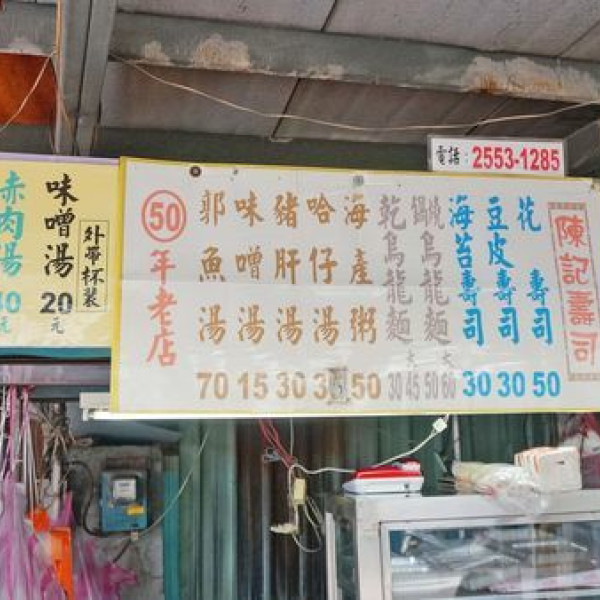 電話：2553-1285
陳記壽司
花壽司 50
豆皮壽司 30
海苔壽司 30
鍋燒烏龍麵 50 大60
乾烏龍麵 30 大45
海產粥 50
哈仔湯
豬肝湯 30
味噌湯 15
郭魚湯 70
50年老店
外帶杯裝
味噌湯 20元
赤肉湯 元